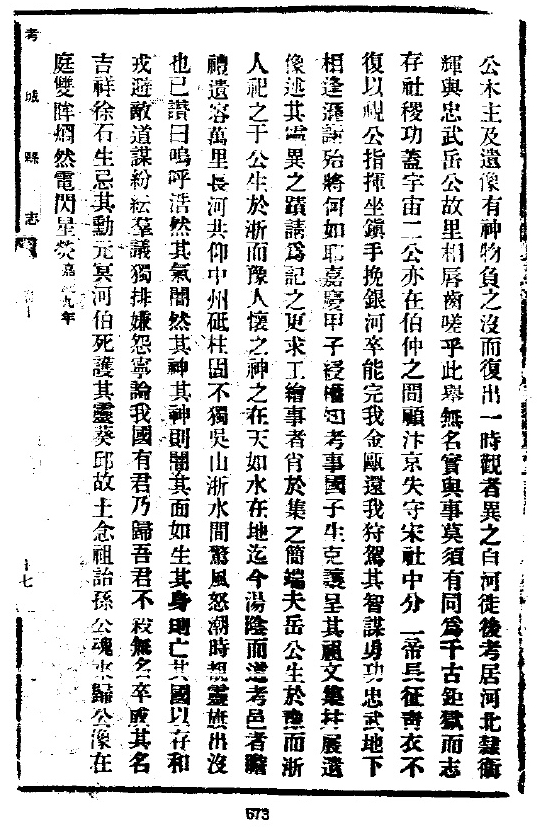 公木主及遺像有神物負之沒而復出一時觀者異之自河徙後考居河北隸衛
輝與忠武岳公故里相唇齒嗟乎此舉無名實與事莫須有同爲千古鉅獄而志
存社稷功蓋宇宙二公亦在伯仲之間顧汴京失守宋社中分二帝長征靑衣不
復以視公指揮坐鎭手挽銀河卒能完我金甌還我狩駕其智謀勇功忠武地下
相逢 殆將何如耶嘉慶甲子綬 知考事國子生克 呈其祖文集并展遺
像述其靈異之蹟請爲記之更求工繪事者肖於集之簡端夫岳公生於豫而浙
人祀之于公生於浙而豫人懷之神之在天如水在地迄今湯陰而道考邑者瞻
禮遺容萬里長河共仰中州砥柱固不獨吳山浙水間驚風怒潮時覩靈旗出沒
也已讚曰嗚呼浩然其氣闇然其神其神則闇其面如生其身則亡其國以存和
戎避敵道謀紛紜羣議獨排嫌怨寧論我國有君乃歸吾君不殺無名卒或其名
吉祥徐石生忌其勳元冥河伯死護其靈葵邱故土念祖詒孫公魂來歸公像在
庭雙眸爛然電閃星熒嘉 九年
考城縣志
十七
673